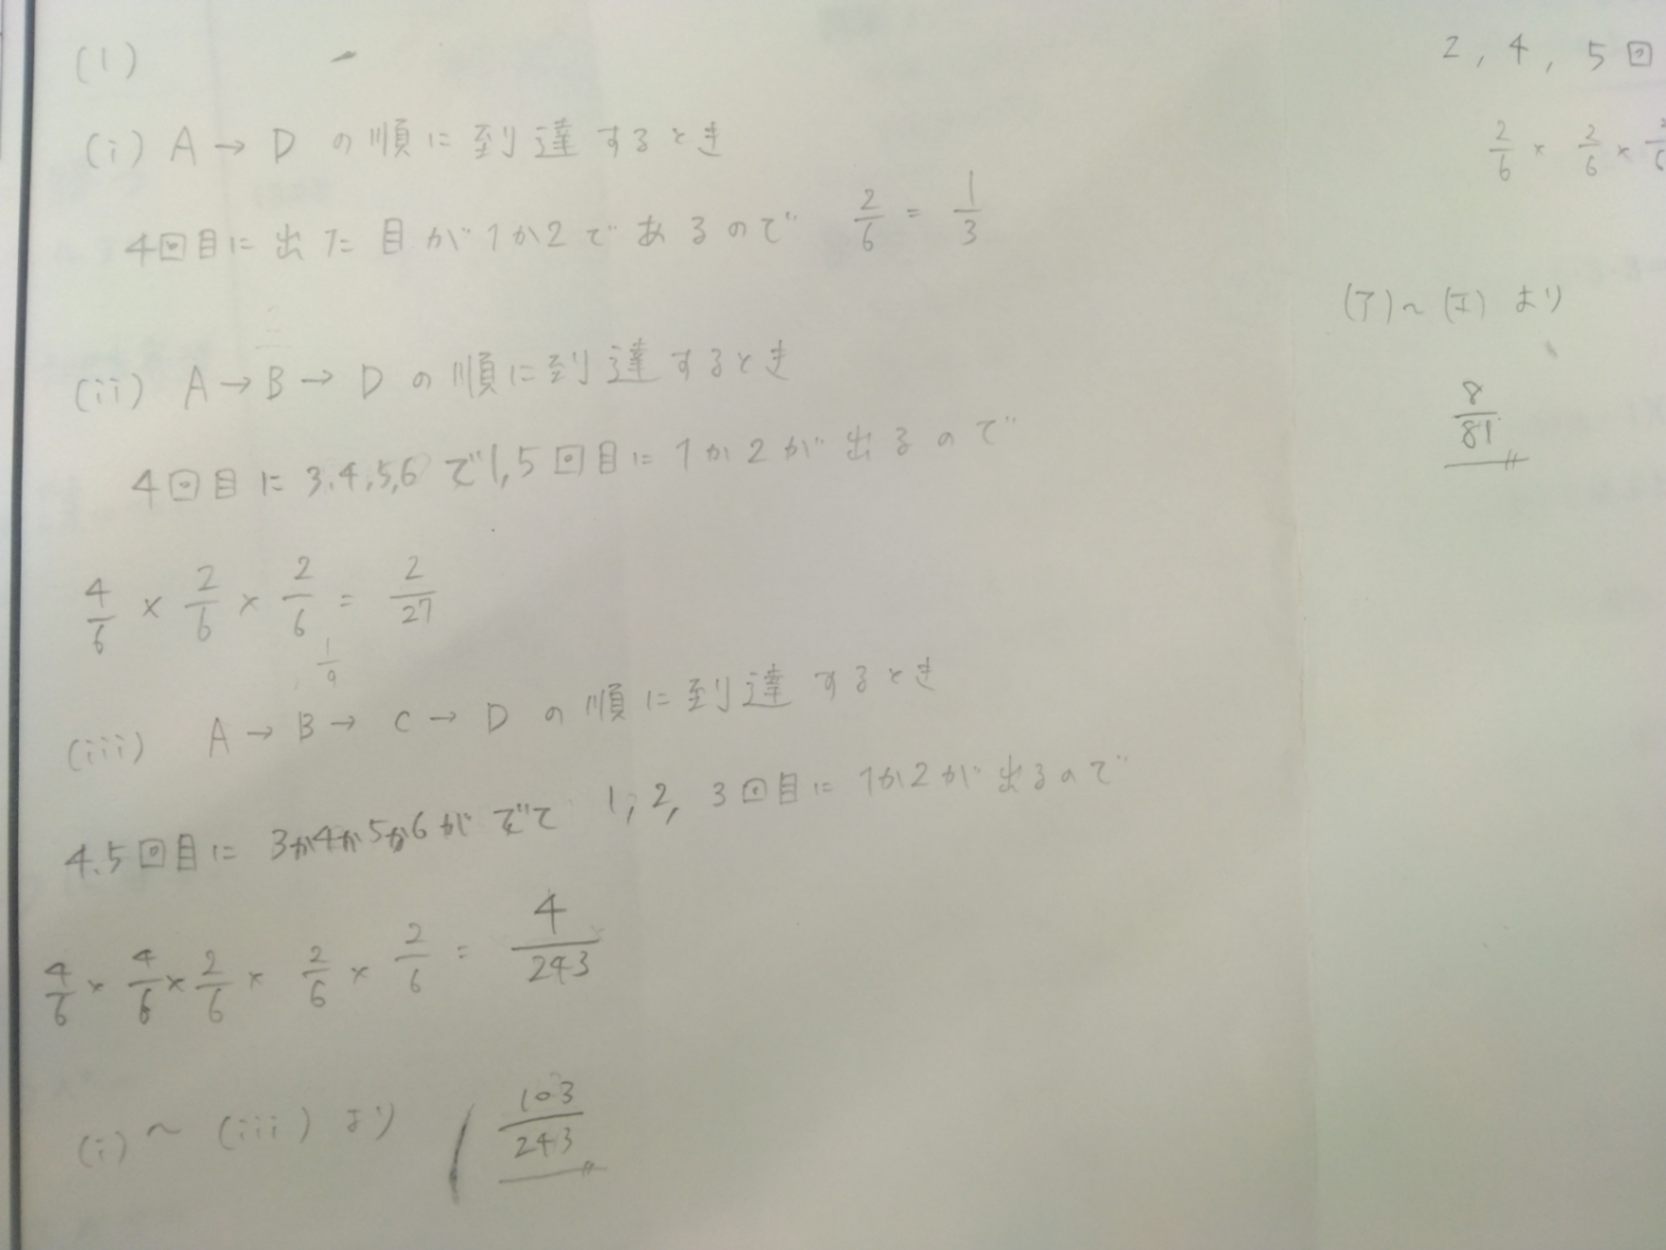 (1)
(i) A → D の順に到達するとき
4回目に出た目が1か2であるので 2/6 = 1/3
(ii) A → B → D の順に到達するとき
4回目に3.4.5,6で1,5回目に1か2が出るので
4/6 × 2/6 × 2/6 = 2/27
1/9
(iii) A → B → C → D の順に到達するとき
4.5回目に3か4か5か6がでて1,2,3回目に1か2が出るので
4/6 × 4/6 × 2/6 × 2/6 × 2/6 = 4/243
(i) ~ (iii) より 103/243
2, 4, 5回
2/6 × 2/6 ×
(ア) ~ (エ) より
8/81